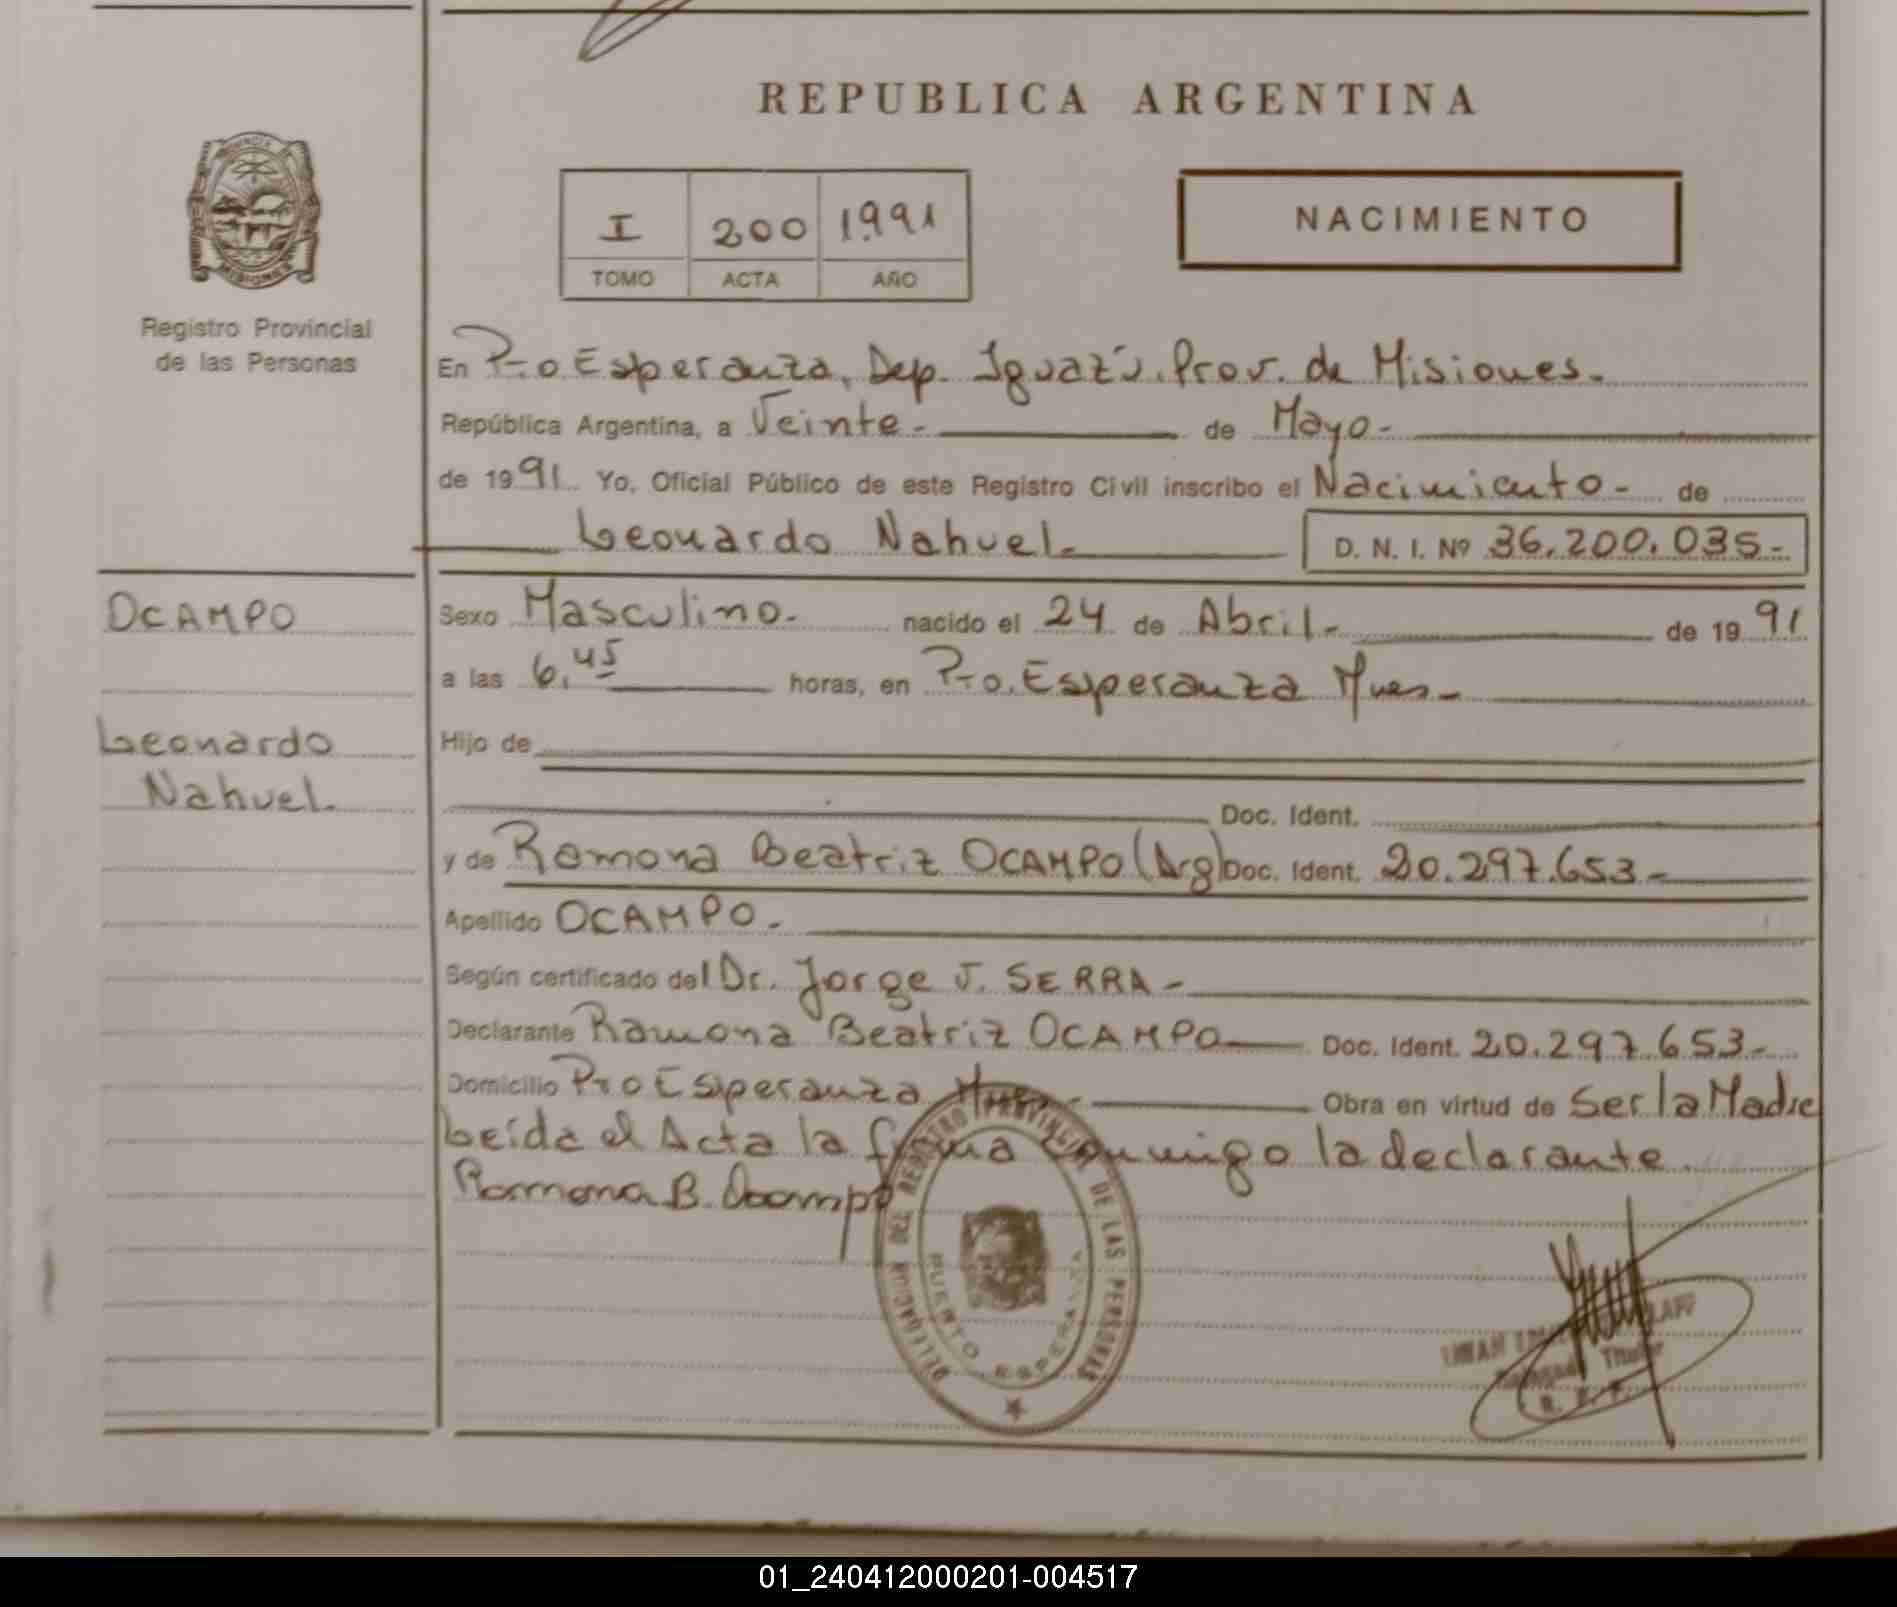 REPUBLICA ARGENTINA
I 200 1991
TOMO ACTA AÑO
NACIMIENTO
MISIONES
Registro Provincial
de las Personas
En Pto Esperanza, Dep. Iguazú. Prov. de Misiones.
República Argentina, a Veinte - de Mayo -
de 1991. Yo, Oficial Público de este Registro Civil inscribo el Nacimiento - de
Leonardo Nahuel.
D. N. I. Nº 36.200.035.-
OCAMPO
Leonardo
Nahuel.
Sexo Masculino. nacido el 24 de Abril - de 1991
a las 6,45 horas, en Pto. Esperanza Mnes -
Hijo de
Doc. Ident.
y de Ramona Beatriz OCAMPO (Arg) Doc. Ident. 20.297.653 -
Apellido OCAMPO.
Según certificado del Dr. Jorge J. SERRA -
Declarante Ramona Beatriz OCAMPO Doc. Ident. 20.297.653 -
Domicilio Pto Esperanza Mnes - Obra en virtud de Ser la Madre
Leída el Acta la firma conmigo la declarante
Ramona B. Ocampo
DELEGACION DEL REGISTRO PROVINCIAL DE LAS PERSONAS
PUERTO ESPERANZA
Titular
01_240412000201-004517